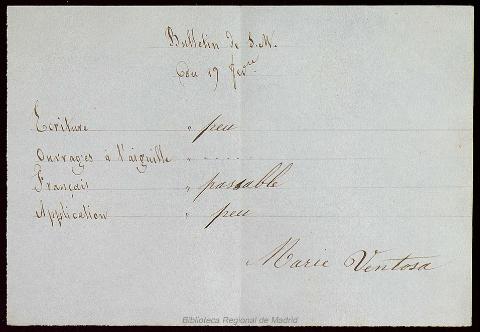 Bulletin de S.M.
du 19 fevre
Ecriture " peu
Ouvrages à l'aiguille " . . . . . . .
Français " passable
Application " peu
Marie Ventosa
Biblioteca Regional de Madrid